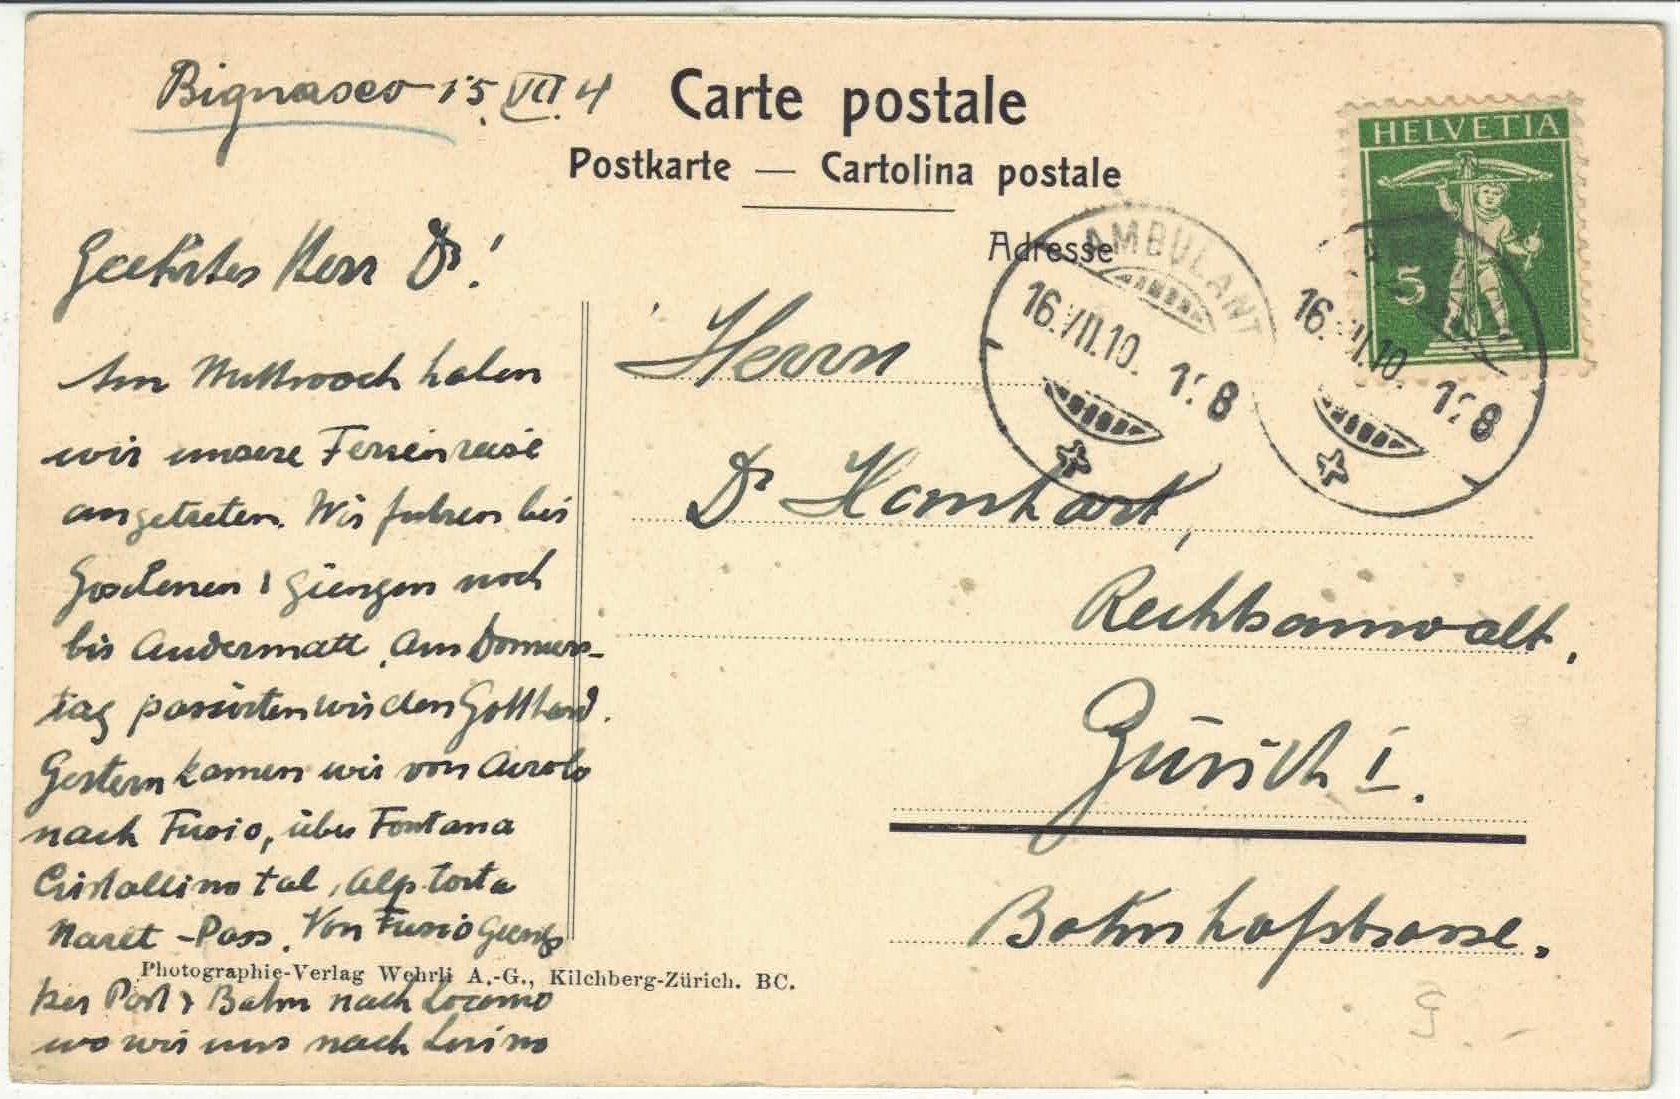 Bignasco 15. VII. 4
Carte postale
Postkarte — Cartolina postale
HELVETIA
5
Adresse
AMBULANT
16.VII.10. 128
16.VII.10. 128
Geehrtes Herr Dr!
Am Mittwoch haben
wir unsere Ferienreise
angetreten. Wir fuhren bis
Goschenen & giengen noch
bis Andermatt. Am Donners-
tag passirten wir den Gotthard.
Gestern kamen wir von Airolo
nach Fusio, über Fontana
Cristallino tal, Alp torta
Naret-Pass. Von Fusio giengs
per Post & Bahn nach Locarno
wo wir uns nach Luino
Herrn
Dr Hanhart,
Rechtsanwalt,
Zürich I.
Bahnhofstrasse.
Photographie-Verlag Wehrli A.-G., Kilchberg-Zürich. BC.